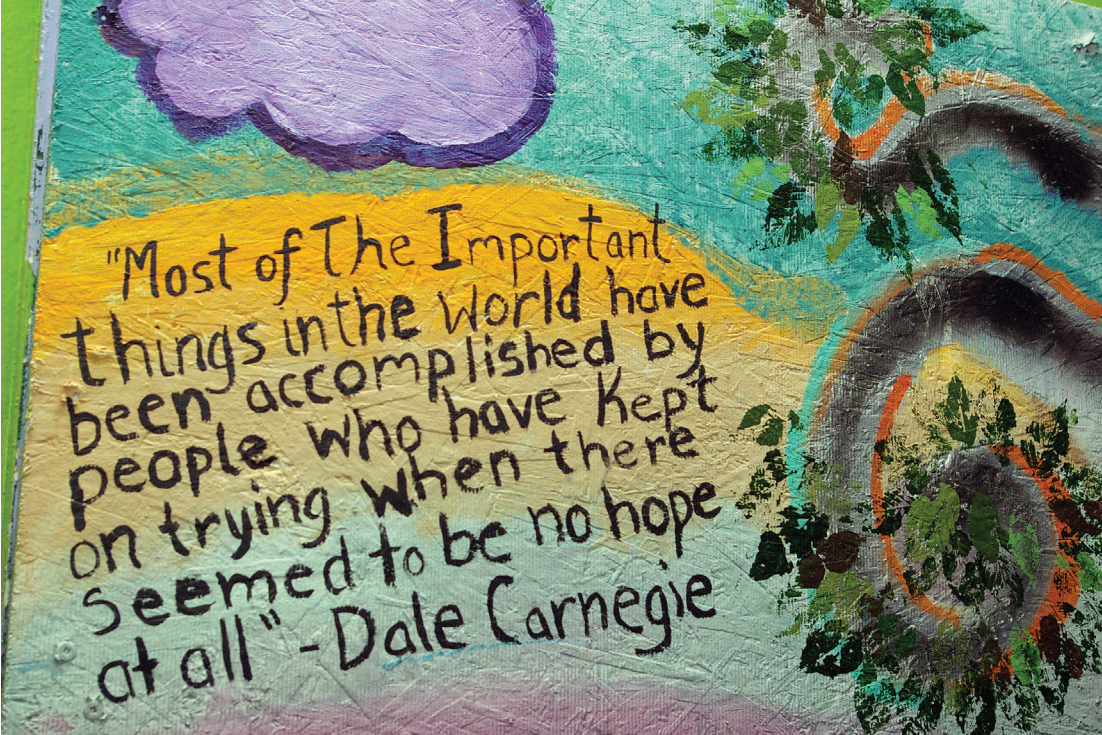 "Most of The Important
things in the World have
been accomplished by
people who have kept
on trying when there
seemed to be no hope
at all" - Dale Carnegie